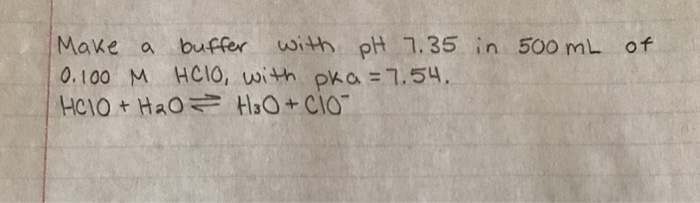 Make a buffer with pH 7.35 in 500 mL of
0.100 M HClO, with pka = 7.54.
HClO + H₂O ⇌ H₃O + ClO⁻